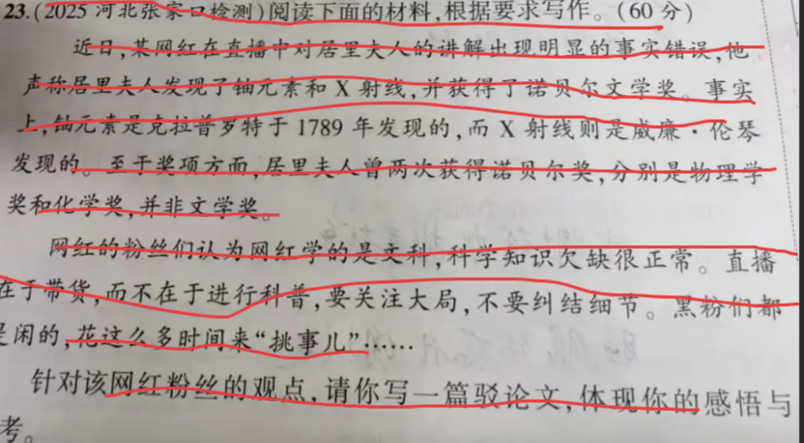 23.(2025 河北张家口检测)阅读下面的材料,根据要求写作。(60 分)
近日,某网红在直播中对居里夫人的讲解出现明显的事实错误,他
声称居里夫人发现了铀元素和 X 射线,并获得了诺贝尔文学奖。事实
上,铀元素是克拉普罗特于 1789 年发现的,而 X 射线则是威廉·伦琴
发现的。至于奖项方面,居里夫人曾两次获得诺贝尔奖,分别是物理学
奖和化学奖,并非文学奖。
网红的粉丝们认为网红学的是文科,科学知识欠缺很正常。直播
在于带货,而不在于进行科普,要关注大局,不要纠结细节。黑粉们都
是闲的,花这么多时间来“挑事儿”……
针对该网红粉丝的观点,请你写一篇驳论文,体现你的感悟与
考。